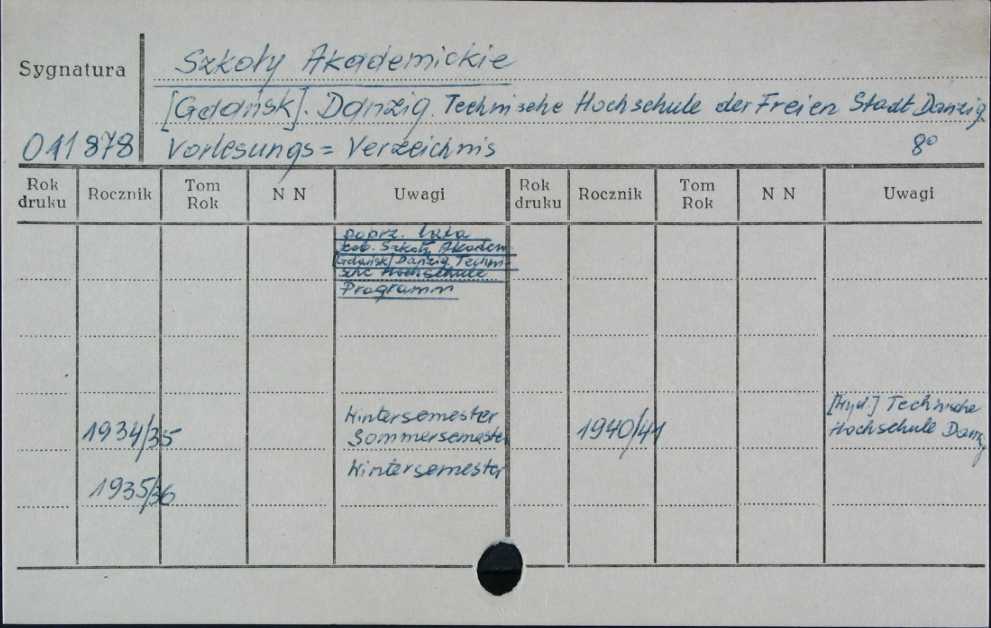 Sygnatura
Szkoły Akademickie
[Gdańsk]. Danzig. Technische Hochschule der Freien Stadt Danzig.
011878 Vorlesungs = Verzeichnis 8°
Rok druku Rocznik Tom Rok N N Uwagi Rok druku Rocznik Tom Rok N N Uwagi
poprz. lata
zob. Szkoły Akadem
[Gdańsk] Danzig Techni-
sche Hochschule
Programm
1934/35 Wintersemester
Sommersemester
1940/41 [Wyd.] Technische
Hochschule Danzig
1935/36 Wintersemester